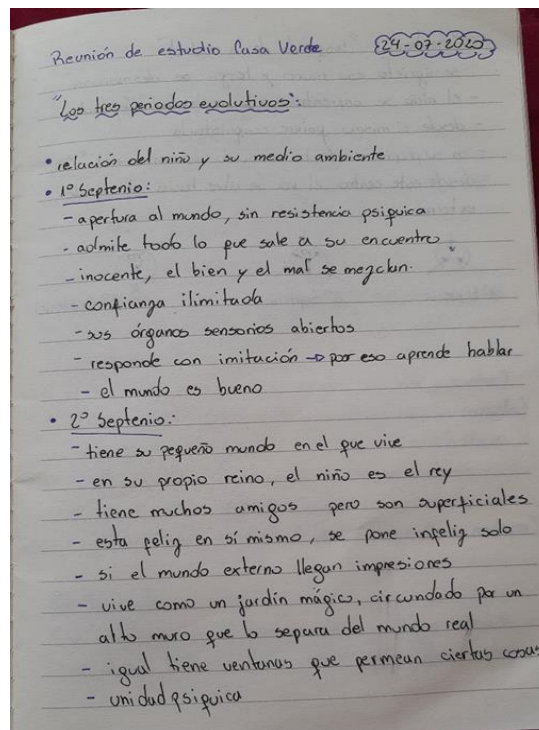 Reunión de estudio Casa Verde 24-07-2020
"Los tres periodos evolutivos":
• relación del niño y su medio ambiente
• 1º Septenio:
- apertura al mundo, sin resistencia psiquica
- admite todo lo que sale a su encuentro
- inocente, el bien y el mal se mezclan.
- confianza ilimitada
- sus órganos sensorios abiertos
- responde con imitación → por eso aprende hablar
- el mundo es bueno
• 2º Septenio:
- tiene su pequeño mundo en el que vive
- en su propio reino, el niño es el rey
- tiene muchos amigos pero son superficiales
- esta feliz en sí mismo, se pone infeliz solo
- si el mundo externo llegan impresiones
- vive como un jardín mágico, circundado por un
alto muro que lo separa del mundo real
- igual tiene ventanas que permean ciertas cosas
- unidad psiquica